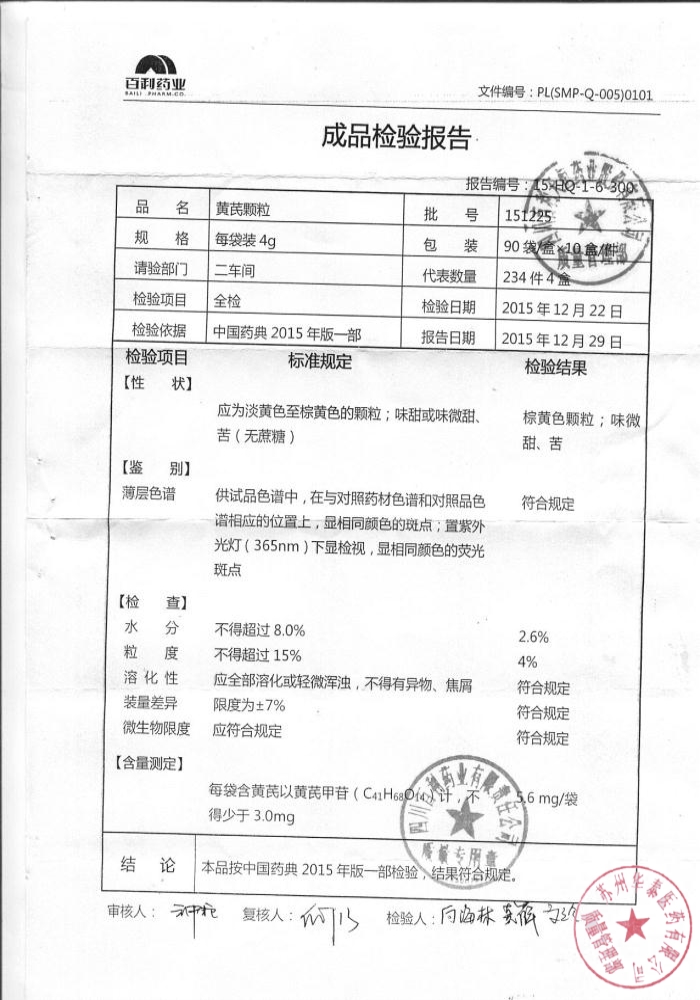 百利药业
BAILI PHARM·CO.
文件编号：PL(SMP-Q-005)0101
成品检验报告
报告编号：15-HQ-1-6-300
品 名 黄芪颗粒 批 号 151225
规 格 每袋装 4g 包 装 90 袋/盒×10 盒/件
请验部门 二车间 代表数量 234 件 4 盒
检验项目 全检 检验日期 2015 年 12 月 22 日
检验依据 中国药典 2015 年版一部 报告日期 2015 年 12 月 29 日
检验项目 标准规定 检验结果
【性 状】
应为淡黄色至棕黄色的颗粒；味甜或味微甜、 棕黄色颗粒；味微
苦（无蔗糖） 甜、苦
【鉴 别】
薄层色谱 供试品色谱中，在与对照药材色谱和对照品色 符合规定
谱相应的位置上，显相同颜色的斑点；置紫外
光灯（365nm）下显检视，显相同颜色的荧光
斑点
【检 查】
水 分 不得超过 8.0% 2.6%
粒 度 不得超过 15% 4%
溶 化 性 应全部溶化或轻微浑浊，不得有异物、焦屑 符合规定
装量差异 限度为±7% 符合规定
微生物限度 应符合规定 符合规定
【含量测定】
每袋含黄芪以黄芪甲苷（C₄₁H₆₈O₁₄）计，不 5.6 mg/袋
得少于 3.0mg
四川百利药业有限责任公司
质检专用章
结 论 本品按中国药典 2015 年版一部检验，结果符合规定。
审核人： 复核人： 检验人：向海林
苏州华泰医药有限公司
质量管理部